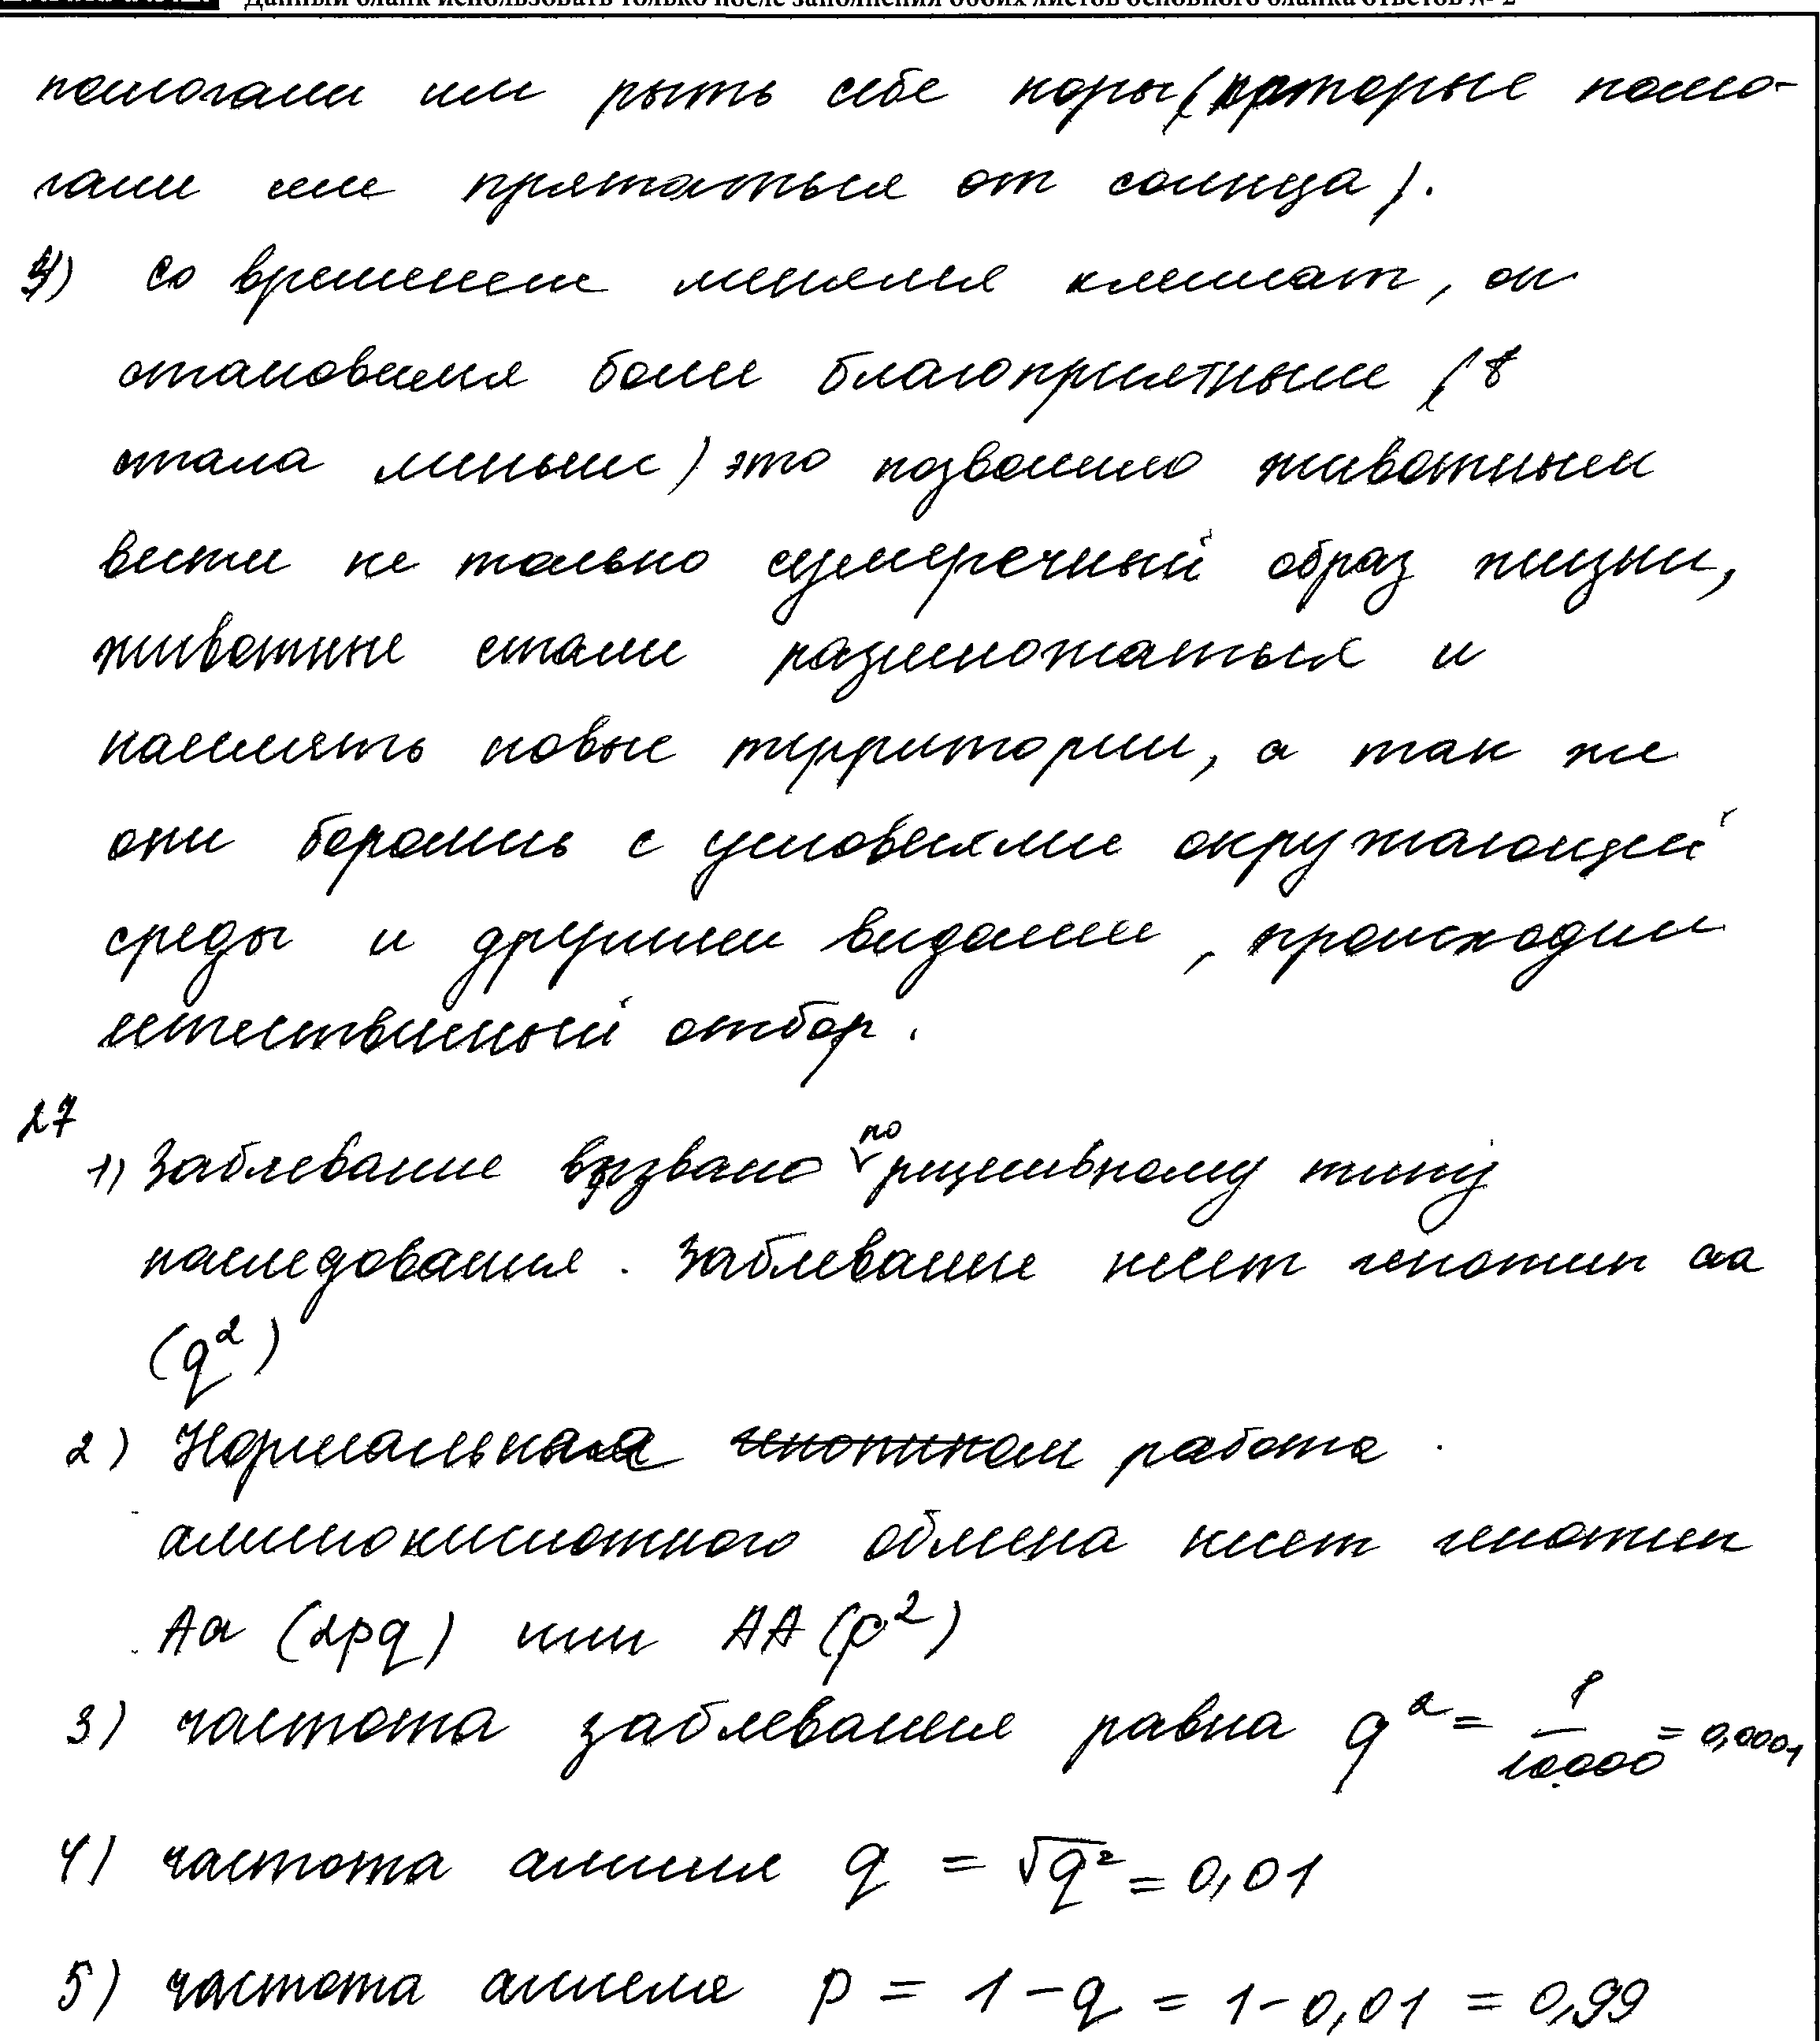 Данный бланк использовать только после заполнения обоих листов основного бланка ответов № 2
помогали им рыть себе норы (которые помо-
гали им прятаться от солнца).
4) Со временем менялся климат, он
становился более благоприятным (t
стала меньше) это позволило животным
вести не только сумеречный образ жизни,
животные стали размножаться и
населять новые территории, а так же
они боролись с условиями окружающей
среды и другими видами, происходил
естественный отбор.
27
1) Заблевание вызвано по рецесивному типу
наследования. Заблевание несет генотип аа
(q²)
2) Нормальная работа
аминокислотного обмена несет генотип
Aa (2pq) или AA (p²)
3) частота заблевания равна q² = 1/10.000 = 0,0001
4) частота аллеля q = √q² = 0,01
5) частота аллеля p = 1 - q = 1 - 0,01 = 0,99